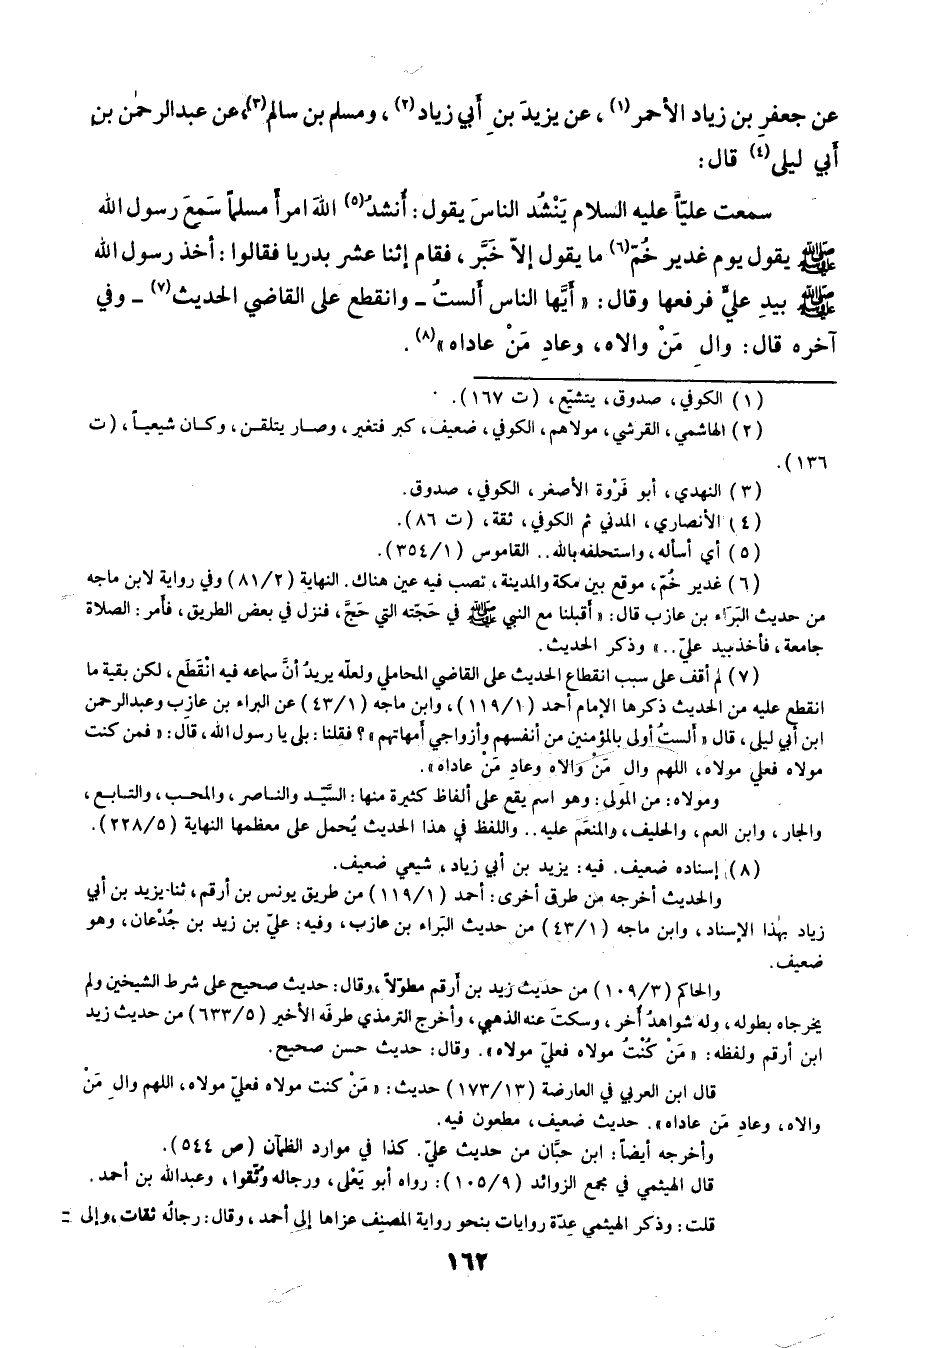 عن جعفرِ بن زياد الأحمر(١)، عن يزيدَ بن أبي زياد(٢)، ومسلم بن سالم(٣)،عن عبدالرحمٰن بنِ
أبي ليلى(٤) قال:
سمعت عليّاً عليه السلام يَنْشُد الناسَ يقول: أُنشدُ(٥) اللهَ امرأً مسلماً سَمِعَ رسول الله
ﷺ يقول يوم غدير خُمّ(٦) ما يقول إلاّ خَبَّر، فقام إثنا عشر بدريا فقالوا: أخذ رسول الله
ﷺ بيدِ عليٍّ فرفعها وقال: «أيَّها الناس ألستُ ـ وانقطع على القاضي الحديث(٧) ـ وفي
آخره قال: والِ مَنْ والاه، وعادِ مَنْ عاداه»(٨).
(١) الكوفي، صدوق، يتشيّع، (ت ١٦٧).
(٢) الهاشمي، القرشي، مولاهم، الكوفي، ضعيف، كبر فتغير، وصار يتلقن، وكان شيعياً، (ت
١٣٦).
(٣) النهدي، أبو فَرْوة الأصغر، الكوفي، صدوق.
(٤) الأنصاري، المدني ثم الكوفي، ثقة، (ت ٨٦).
(٥) أي أسأله، واستحلفه بالله.. القاموس (٣٥٤/١).
(٦) غدير خُمّ، موقع بين مكة والمدينة، تصب فيه عين هناك. النهاية (٨١/٢) وفي رواية لابن ماجه
من حديث البَرَاء بن عازب قال: «أقبلنا مع النبي ﷺ في حَجّته التي حَجَّ، فنزل في بعض الطريق، فأمر: الصلاة
جامعة، فأخذ بيد عليّ..» وذكر الحديث.
(٧) لم أقف على سبب انقطاع الحديث على القاضي المحاملي ولعلّه يريدُ أنَّ سماعه فيه انْقَطَع، لكن بقية ما
انقطع عليه من الحديث ذكرها الإمام أحمد (١١٩/١)، وابن ماجه (٤٣/١) عن البراء بن عازب وعبدالرحمن
ابن أبي ليلى، قال «ألستُ أولى بالمؤمنين من أنفسهم وأزواجي أمهاتهم»؟ فقلنا: بلى يا رسول الله، قال: «فمن كنت
مولاه فعلي مولاه، اللهم والِ مَنْ وَالاه وعادِ مَنْ عاداه».
ومولاه: من المولى: وهو اسم يقع على ألفاظ كثيرة منها: السَّيّد والناصر، والمحب، والتابع،
والجار، وابن العم، والحليف، والمنعَم عليه.. واللفظ في هذا الحديث يُحمل على معظمها النهاية (٢٢٨/٥).
(٨) إسناده ضعيف. فيه: يزيد بن أبي زياد، شيعي ضعيف.
والحديث أخرجه من طرق أخرى: أحمد (١١٩/١) من طريق يونس بن أرقم، ثنا يزيد بن أبي
زياد بهٰذا الإسناد، وابن ماجه (٤٣/١) من حديث البَراء بن عازب، وفيه: عليّ بن زيد بن جُدْعان، وهو
ضعيف.
والحاكم (١٠٩/٣) من حديث زيد بن أرقم مطوّلاً، وقال: حديث صحيح على شرط الشيخين ولم
يخرجاه بطوله، وله شواهدُ أُخر، وسكتَ عنه الذهبي، وأخرج الترمذي طرفَه الأخير (٦٣٣/٥) من حديث زيد
ابن أرقم ولفظه: «مَنْ كُنْتُ مولاه فعليّ مولاه». وقال: حديث حسن صحيح.
قال ابن العربي في العارضة (١٧٣/١٣) حديث: «مَنْ كنت مولاه فعليّ مولاه، اللهم والِ مَنْ
والاه، وعادِ مَن عاداه». حديث ضعيف، مطعون فيه.
وأخرجه أيضاً: ابن حبَّان من حديث عليّ. كذا في موارد الظمآن (ص ٥٤٤).
قال الهيثمي في مجمع الزوائد (١٠٥/٩): رواه أبو يَعْلى، ورجاله وُثّقوا، وعبدالله بن أحمد.
قلت: وذكر الهيثمي عِدّة روايات بنحو رواية المصنِف عزاها إلى أحمد، وقال: رجالُه ثقات، وإلى =
١٦٢